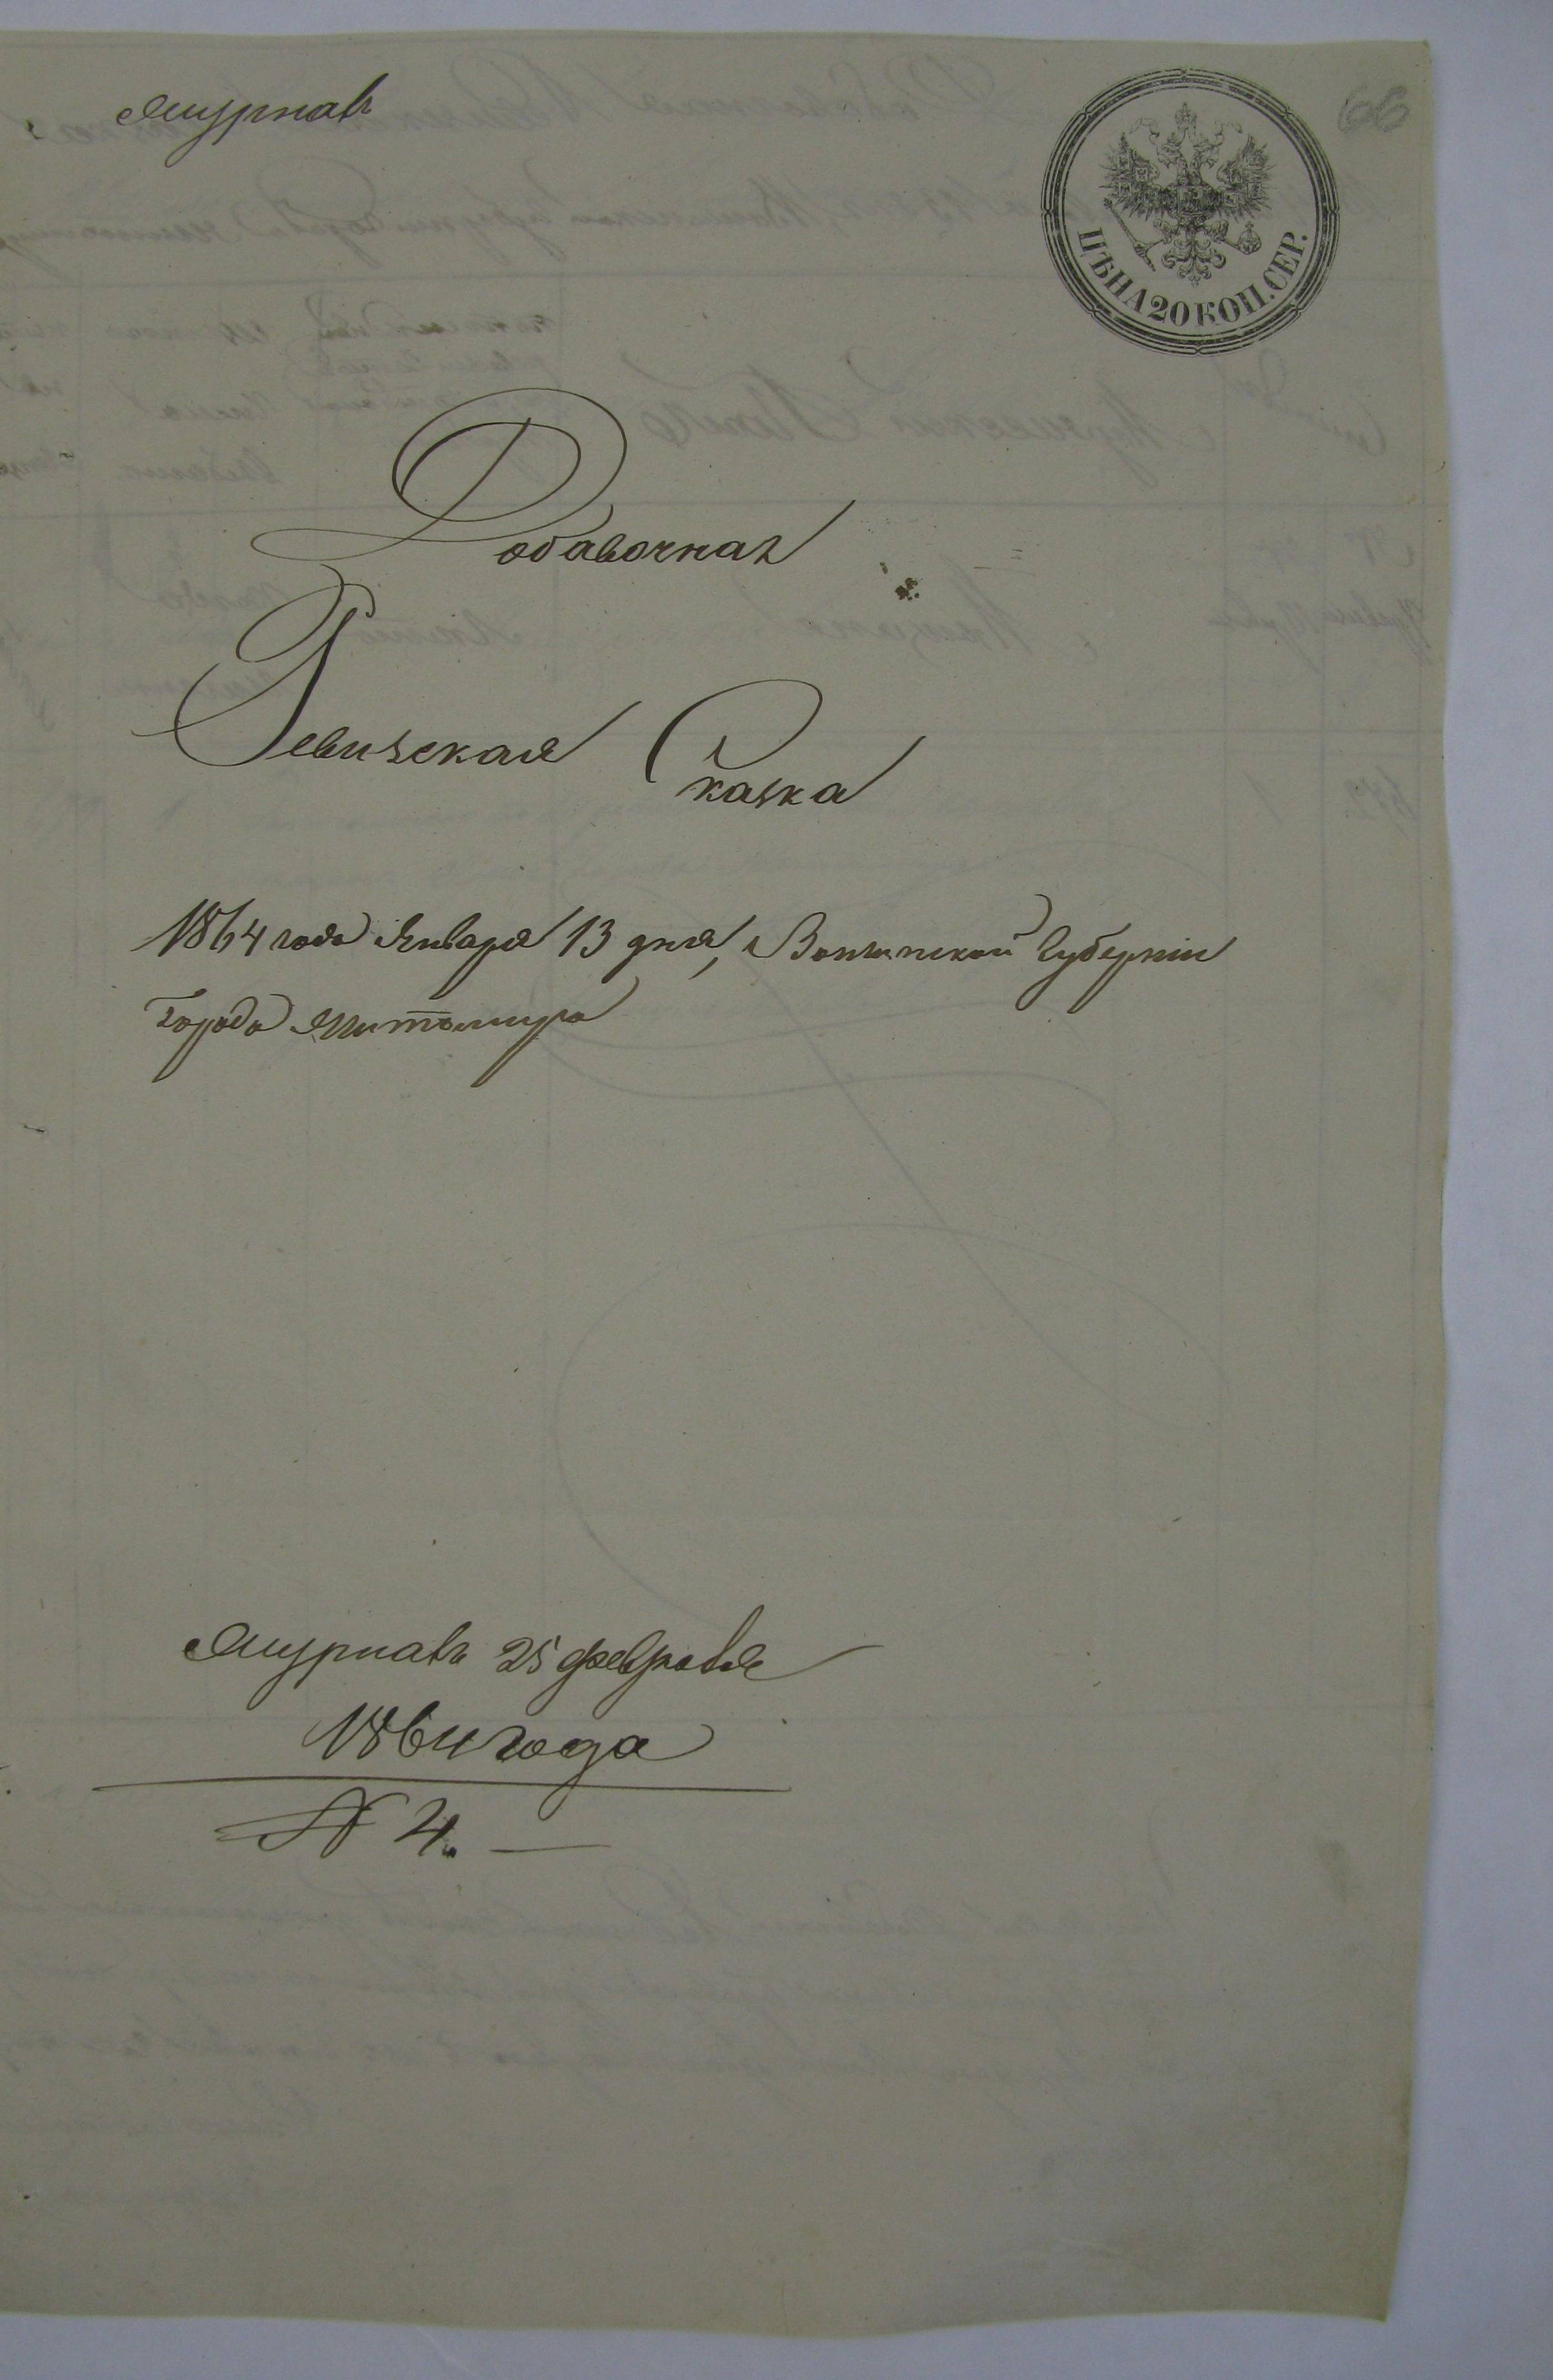 Журналъ
66
ЦѢНА 20 КОП. СЕР.
Добавочная
Ревизская Сказка
1864 года Января 13 дня, Волынской Губерніи
Города Житомира
Журналъ 25 февраля
1864 года
N 4.